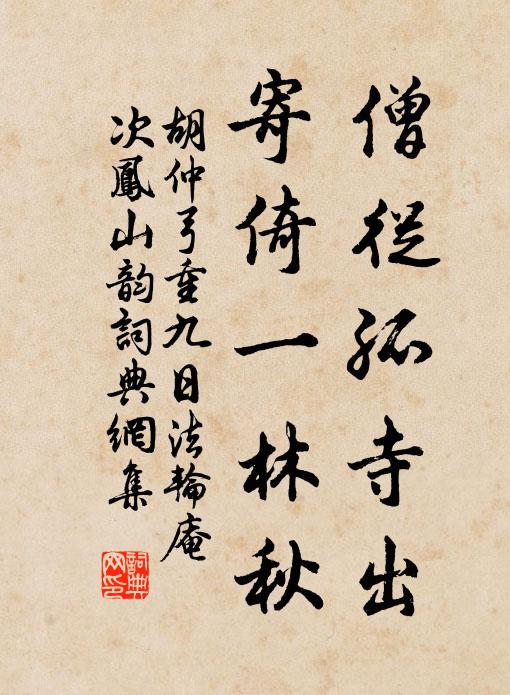 僧從孤寺出
寄倚一林秋
胡仲弓重九日法輪庵
次鳳山韵詞典網集
詞典
网印